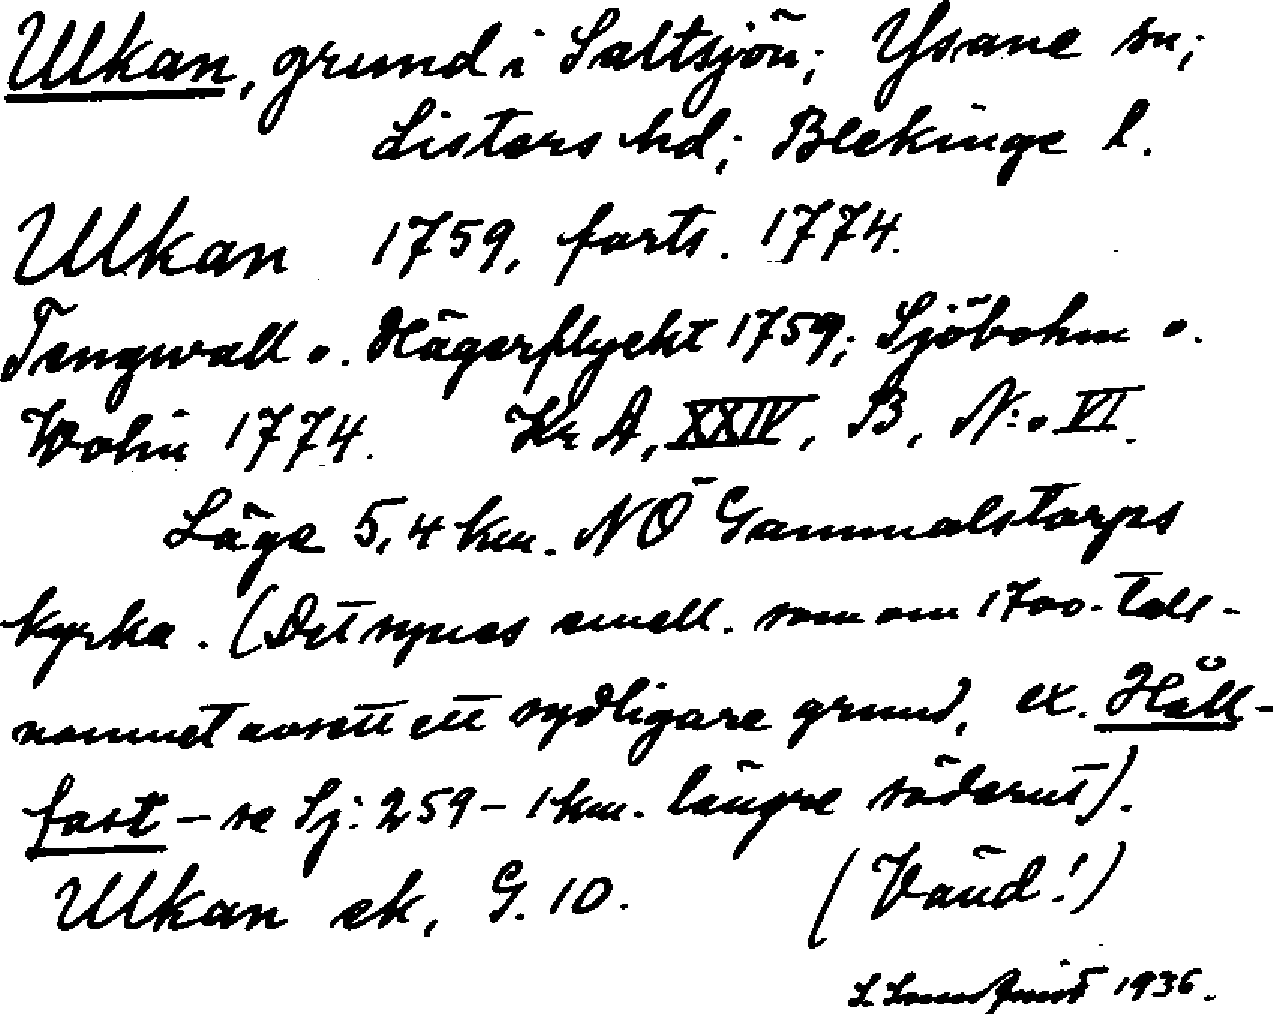 Ulkan, grund i Saltsjön; Ysane sn;
Listers hd; Blekinge l.
Ulkan 1759, forts. 1774.
Tengwall o. Hägerflycht 1759; Sjöbohm o.
Wohn 1774. Kr A, XXIV, B, N:o VI.
Läge 5,4 km. NÖ Gammalstorps
kyrka. (Det synes emell. som om 1700-tals-
namnet avsett ett sydligare grund, ex. Håll-
fast – se Sj: 259 – 1 km. längre söderut).
Ulkan ek, G. 10. (Vänd!)
1936.